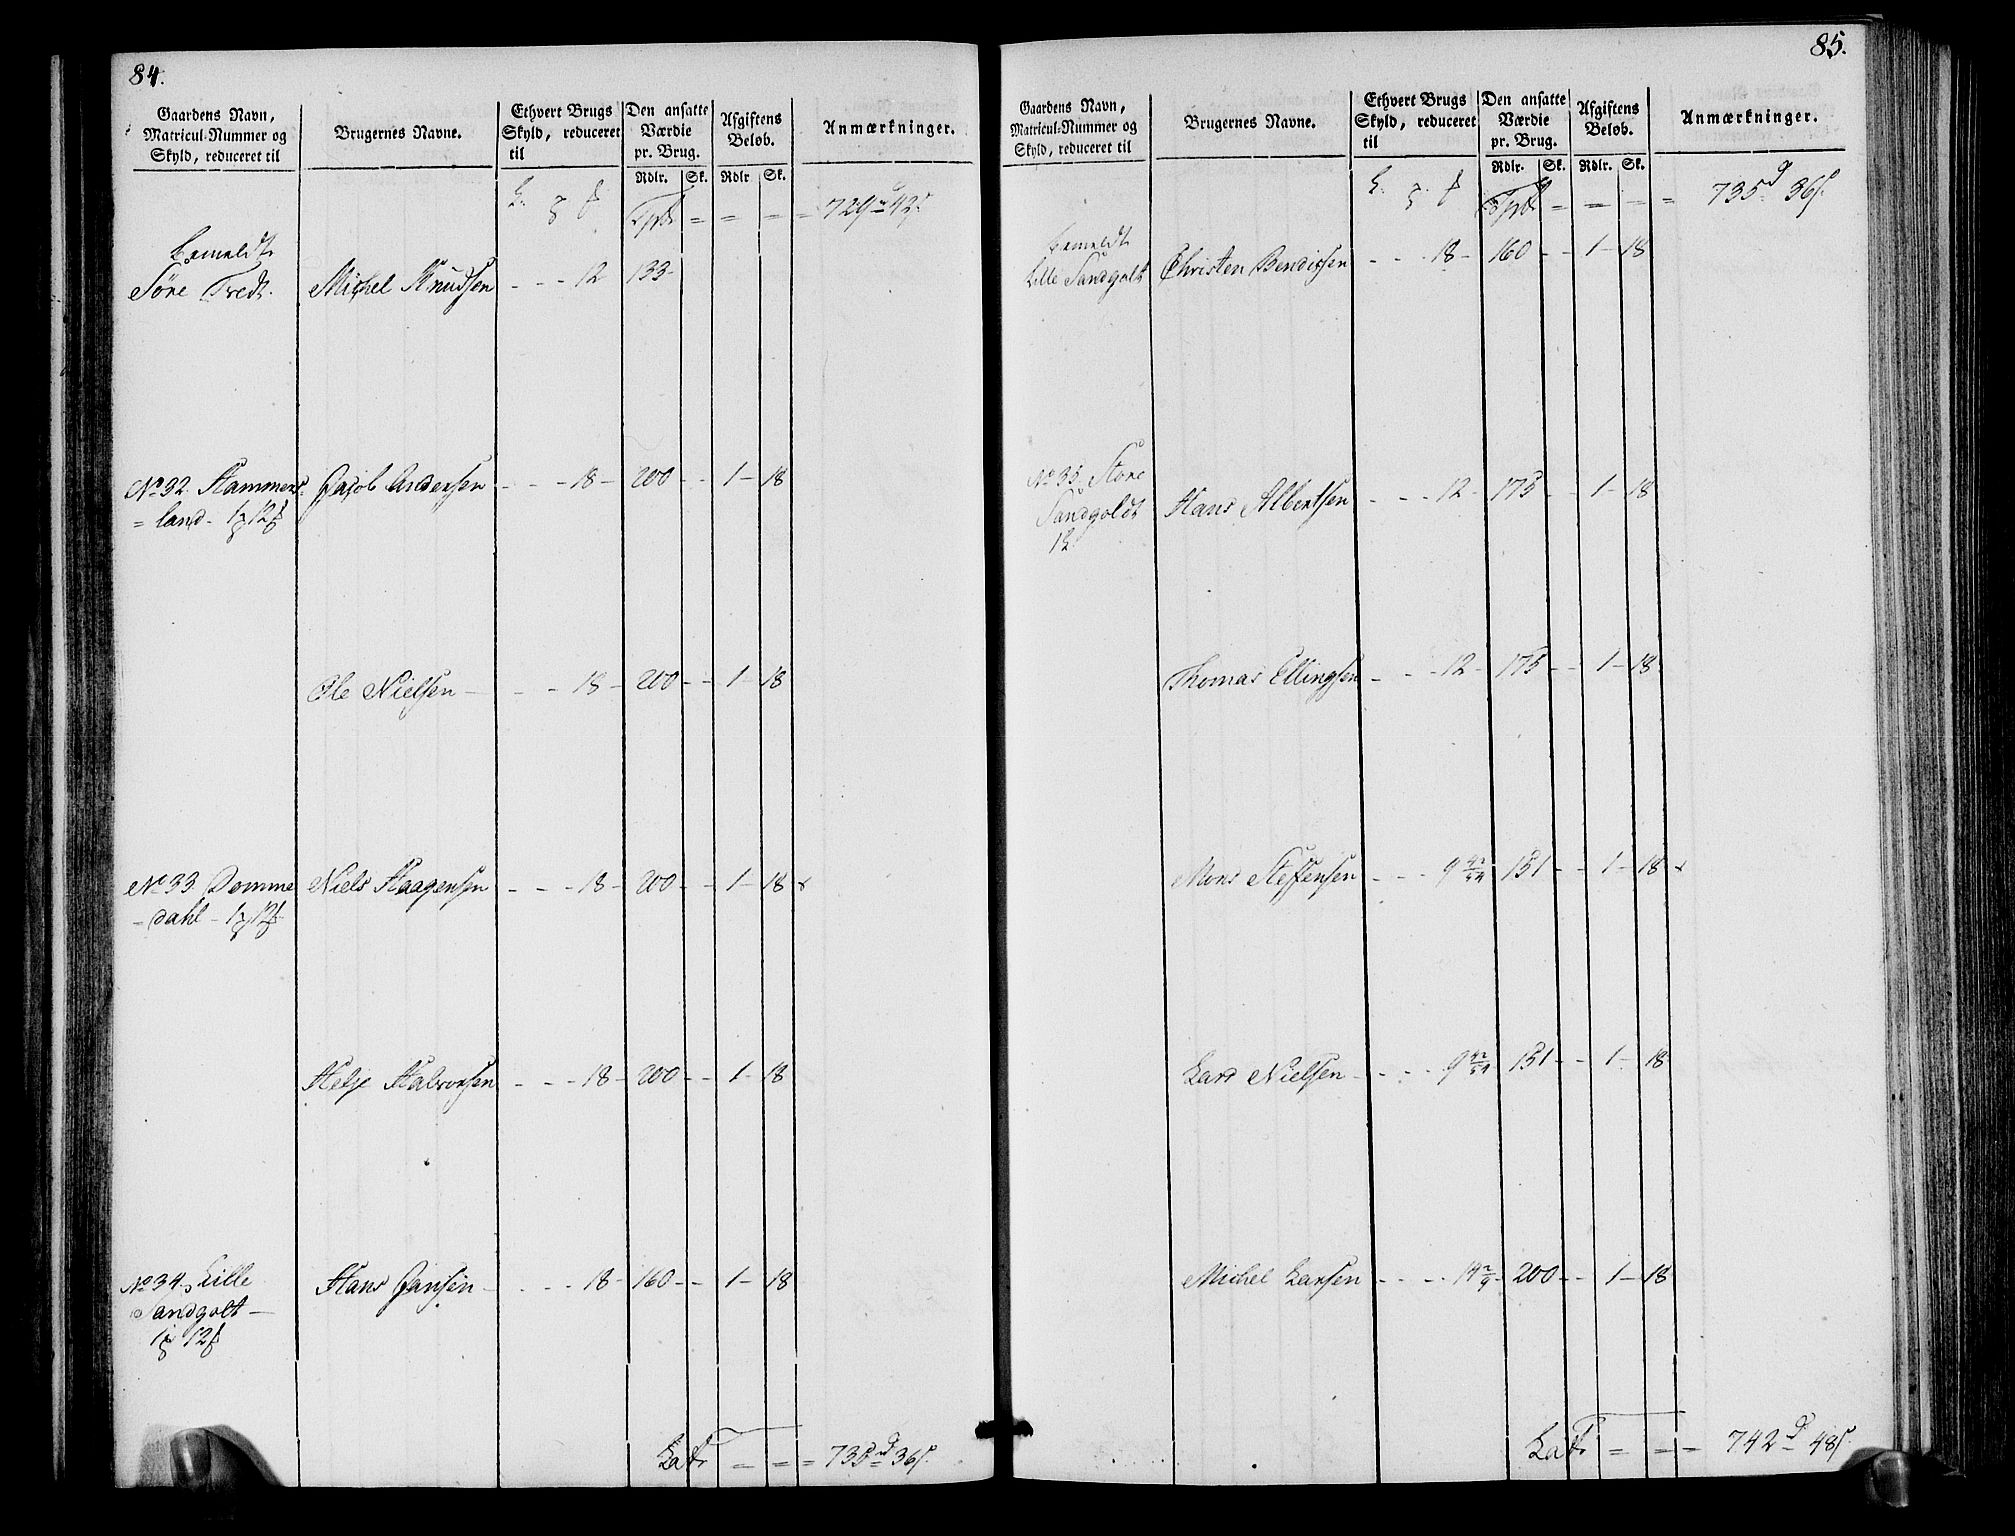 84.
Gaardens Navn, Matricul-Nummer og Skyld, reduceret til
Brugernes Navne.
Ethvert Brugs Skyld, reduceret til
Den ansatte Værdie pr. Brug.
Afgiftens Beløb.
Anmærkninger.
Rdlr. Sk. Rdlr Sk.
Tpt = = = = 729 42
bemeldt
Søre Tredt. Michel Knudsen - - - 12 133
No 32. Hammers Jacob Andersen - - - 18 - 200 - - 1 - 18
= land - 1 12
Ole Nielsen - - - 18 - 200 - - 1 - 18
No 33 Domme Niels Haagensen - - - 18 - 200 - - 1 - 18 x
- dahl - 1 12
Helje Halvorsen - - - 18 - 200 - - 1 - 18
No 34. Lille Hans Jansen - - - 18 - 160 - - 1 - 18
Sandgolt -
1 12
Lat = = = 735 36
85.
Gaardens Navn, Matricul-Nummer og Skyld, reduceret til
Brugernes Navne.
Ethvert Brugs Skyld, reduceret til
Den ansatte Værdie pr. Brug.
Afgiftens Beløb.
Anmærkninger.
Rdlr. Sk. Rdlr. Sk.
Tpt = = - = 735 36
bemeldt
Lille Sandgolt Christen Bendixsen - - - 18 - 160 - - 1 - 18
No 35. Store
Sandgoldt Hans Albertsen - - - 12 - 175 - - 1 - 18
Thomas Ellingsen - - - 12 - 175 - - 1 - 18
Mons Steffensen - - - 9 151 - - 1 - 18 x
Lars Nielsen - - - 9 151 - - 1 - 18
Michel Larsen - - - 14 2/9 - 200 - - 1 - 18
Lat = = = 742 48